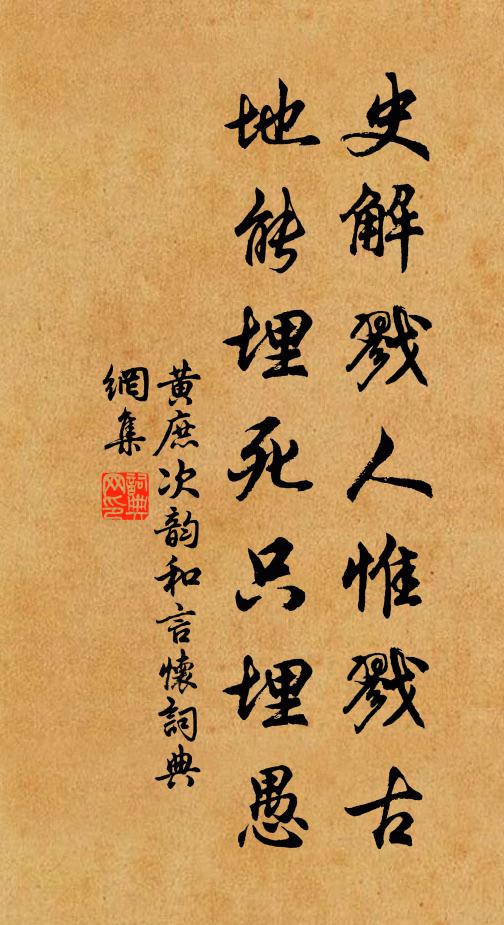 史解戮人惟戮古
地能埋死只埋愚
黄庶次韵和言懷詞典
網集
詞典
网印